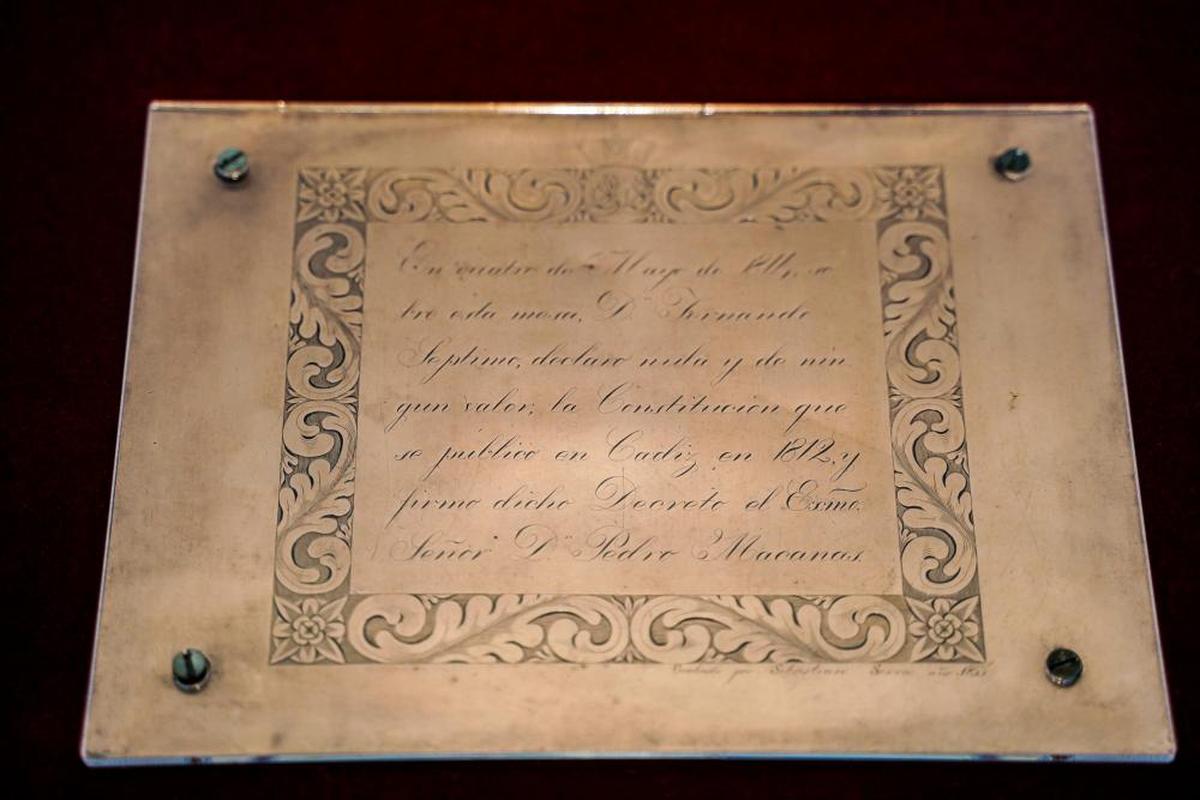 En cuatro de Mayo de 1814, so
bre esta mesa, D.n Fernando
Septimo, declaro nula y de nin
gun valor, la Constitucion que
se publico en Cadiz, en 1812, y
firmo dicho Decreto el Exmo.
Señor D.n Pedro Macanas.
Grabado por Sebastian